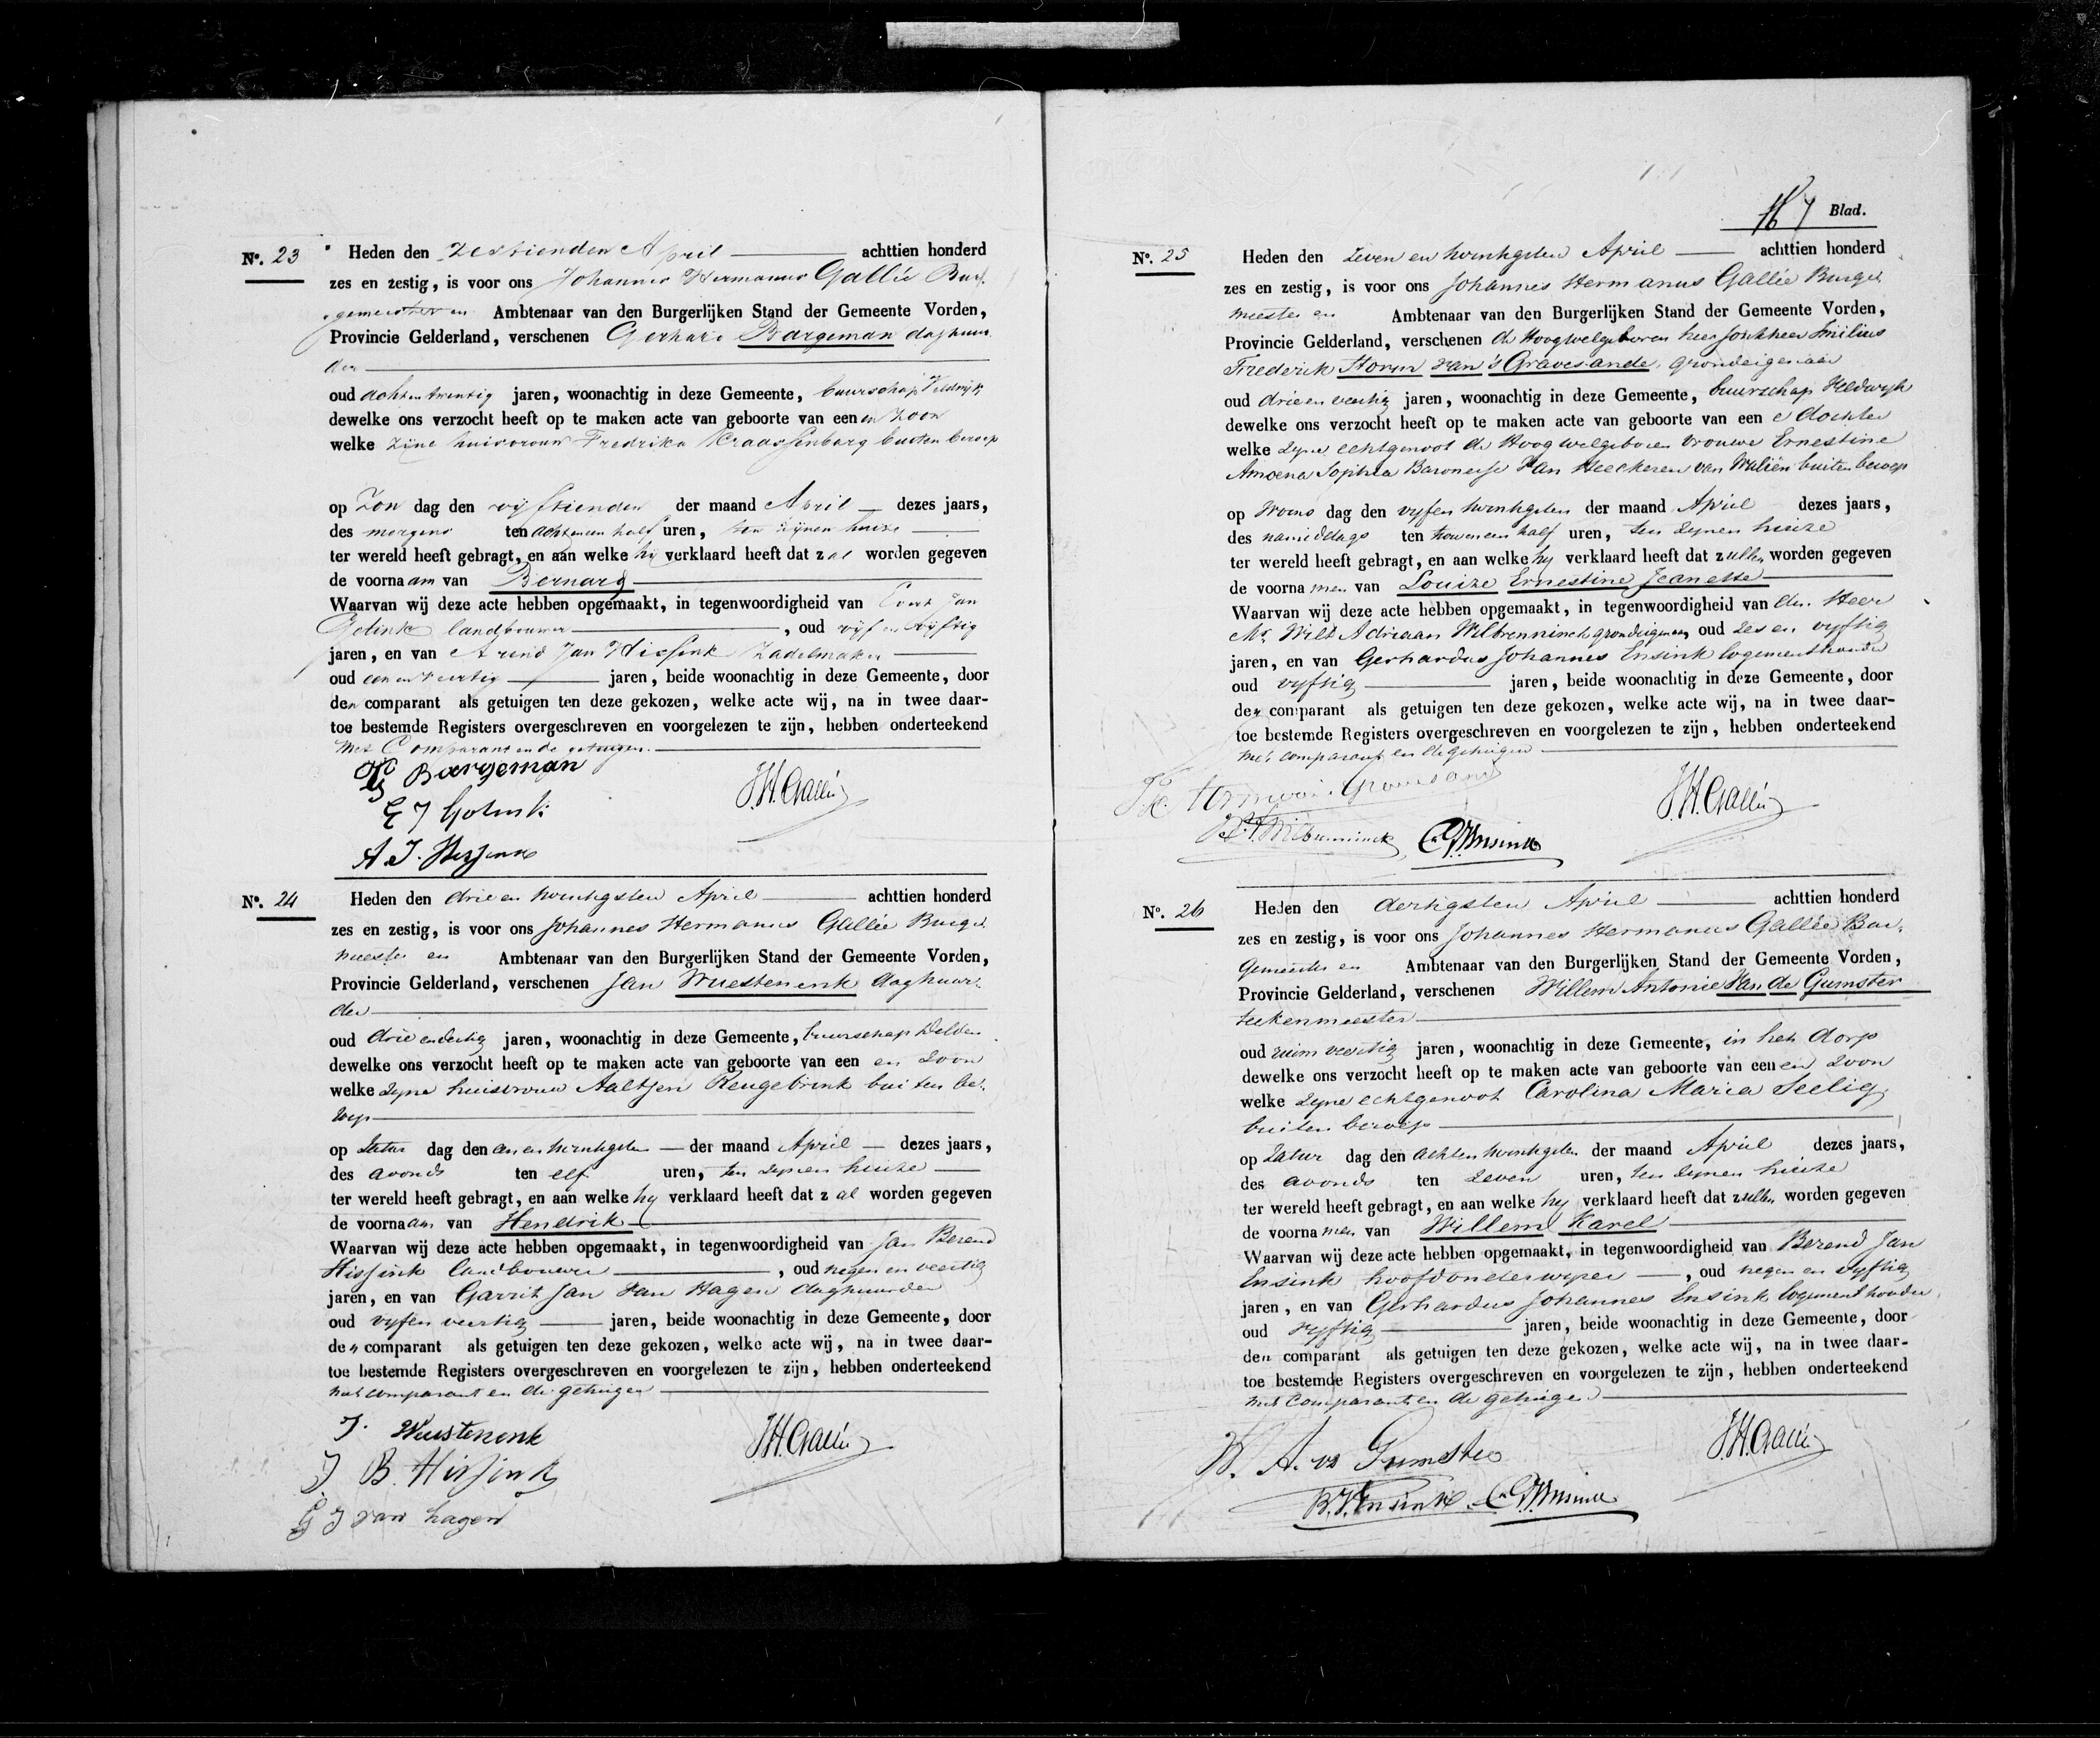 No. 23 Heden den zestienden April achttien honderd
zes en zestig, is voor ons Johannes Hermanus Gallée Bur-
gemeester en Ambtenaar van den Burgerlijken Stand der Gemeente Vorden,
Provincie Gelderland, verschenen Gerhard Bargeman daghuur-
der
oud acht en twintig jaren, woonachtig in deze Gemeente, buurschap Veldwijk
dewelke ons verzocht heeft op te maken acte van geboorte van een en zoon
welke zijne huisvrouw Fredrika Kraassenberg buiten beroep
op Zon dag den vijftienden der maand April dezes jaars,
des morgens ten acht en een half uren, ten zijnen huize
ter wereld heeft gebragt, en aan welke hij verklaard heeft dat zal worden gegeven
de voornaam van Bernard
Waarvan wij deze acte hebben opgemaakt, in tegenwoordigheid van Evert Jan
Golink landbouwer, oud vijf en vijftig
jaren, en van Arend Jan Hissink Zadelmaker
oud een en veertig jaren, beide woonachtig in deze Gemeente, door
den comparant als getuigen ten deze gekozen, welke acte wij, na in twee daar-
toe bestemde Registers overgeschreven en voorgelezen te zijn, hebben onderteekend
met Comparant en de getuigen.
G Bargeman
J.H. Gallée
E J Golink
A. J. Hissink
No. 24 Heden den drie en twintigsten April achttien honderd
zes en zestig, is voor ons Johannes Hermanus Gallée Burge-
meester en Ambtenaar van den Burgerlijken Stand der Gemeente Vorden,
Provincie Gelderland, verschenen Jan Wuestenenk daghuur-
der
oud drie en dertig jaren, woonachtig in deze Gemeente, buurschap Delden
dewelke ons verzocht heeft op te maken acte van geboorte van een en zoon
welke zyne huisvrouw Aaltjen Reugebrink buiten be-
roep
op Satur dag den een en twintigsten der maand April dezes jaars,
des avonds ten elf uren, ten zynen huize
ter wereld heeft gebragt, en aan welke hy verklaard heeft dat zal worden gegeven
de voornaam van Hendrik
Waarvan wij deze acte hebben opgemaakt, in tegenwoordigheid van Jan Berend
Hissink landbouwer, oud negen en veertig
jaren, en van Garrit Jan van Hagen daghuurder
oud vyf en veertig jaren, beide woonachtig in deze Gemeente, door
den comparant als getuigen ten deze gekozen, welke acte wij, na in twee daar-
toe bestemde Registers overgeschreven en voorgelezen te zijn, hebben onderteekend
met comparant en de getuigen
J. Wuestenenk
J.H. Gallée
J B. Hissink
G J van hagen
7 Blad.
No. 25 Heden den zeven en twintigsten April achttien honderd
zes en zestig, is voor ons Johannes Hermanus Gallée Burge-
meester en Ambtenaar van den Burgerlijken Stand der Gemeente Vorden,
Provincie Gelderland, verschenen de Hoogwelgeboren heer Jonkheer Emilius
Frederik Storm van 's Gravesande, grondeigenaar
oud drie en veertig jaren, woonachtig in deze Gemeente, buurschap Veldwyk
dewelke ons verzocht heeft op te maken acte van geboorte van een e dochter
welke zyne echtgenoot de Hoogwelgeboren vrouwe Ernestine
Amoena Sophia Baronesse van Heeckeren van Waliën buiten beroep
op Woens dag den vyf en twintigsten der maand April dezes jaars,
des namiddags ten twee en een half uren, ten zynen huize
ter wereld heeft gebragt, en aan welke hy verklaard heeft dat zullen worden gegeven
de voornamen van Louize Ernestine Jeanette
Waarvan wij deze acte hebben opgemaakt, in tegenwoordigheid van den Heer
Mr. Wilt Adriaan Wilbrenninck grondeigenaar, oud zes en vyftig
jaren, en van Gerhardus Johannes Ensink logementhouder
oud vyftig jaren, beide woonachtig in deze Gemeente, door
den comparant als getuigen ten deze gekozen, welke acte wij, na in twee daar-
toe bestemde Registers overgeschreven en voorgelezen te zijn, hebben onderteekend
met comparant en de getuigen
J.H. Gallée
Wilbrenninck G J Ensink
No. 26 Heden den dertigsten April achttien honderd
zes en zestig, is voor ons Johannes Hermanus Gallée Bur-
gemeester en Ambtenaar van den Burgerlijken Stand der Gemeente Vorden,
Provincie Gelderland, verschenen Willem Antonie van de Gumster
teekenmeester
oud ruim veertig jaren, woonachtig in deze Gemeente, in het dorp
dewelke ons verzocht heeft op te maken acte van geboorte van een en zoon
welke zyne echtgenoot Carolina Maria Seelig
buiten beroep
op Zatur dag den acht en twintigsten der maand April dezes jaars,
des avonds ten zeven uren, ten zynen huize
ter wereld heeft gebragt, en aan welke hy verklaard heeft dat zullen worden gegeven
de voornamen van Willem Karel
Waarvan wij deze acte hebben opgemaakt, in tegenwoordigheid van Berend Jan
Ensink hoofdonderwyzer, oud negen en vyftig
jaren, en van Gerhardus Johannes Ensink logementhouder,
oud vyftig jaren, beide woonachtig in deze Gemeente, door
den comparant als getuigen ten deze gekozen, welke acte wij, na in twee daar-
toe bestemde Registers overgeschreven en voorgelezen te zijn, hebben onderteekend
met Comparant en de getuigen
W. A. vd Gumster
J.H. Gallée
B.J. Ensink G J Ensink